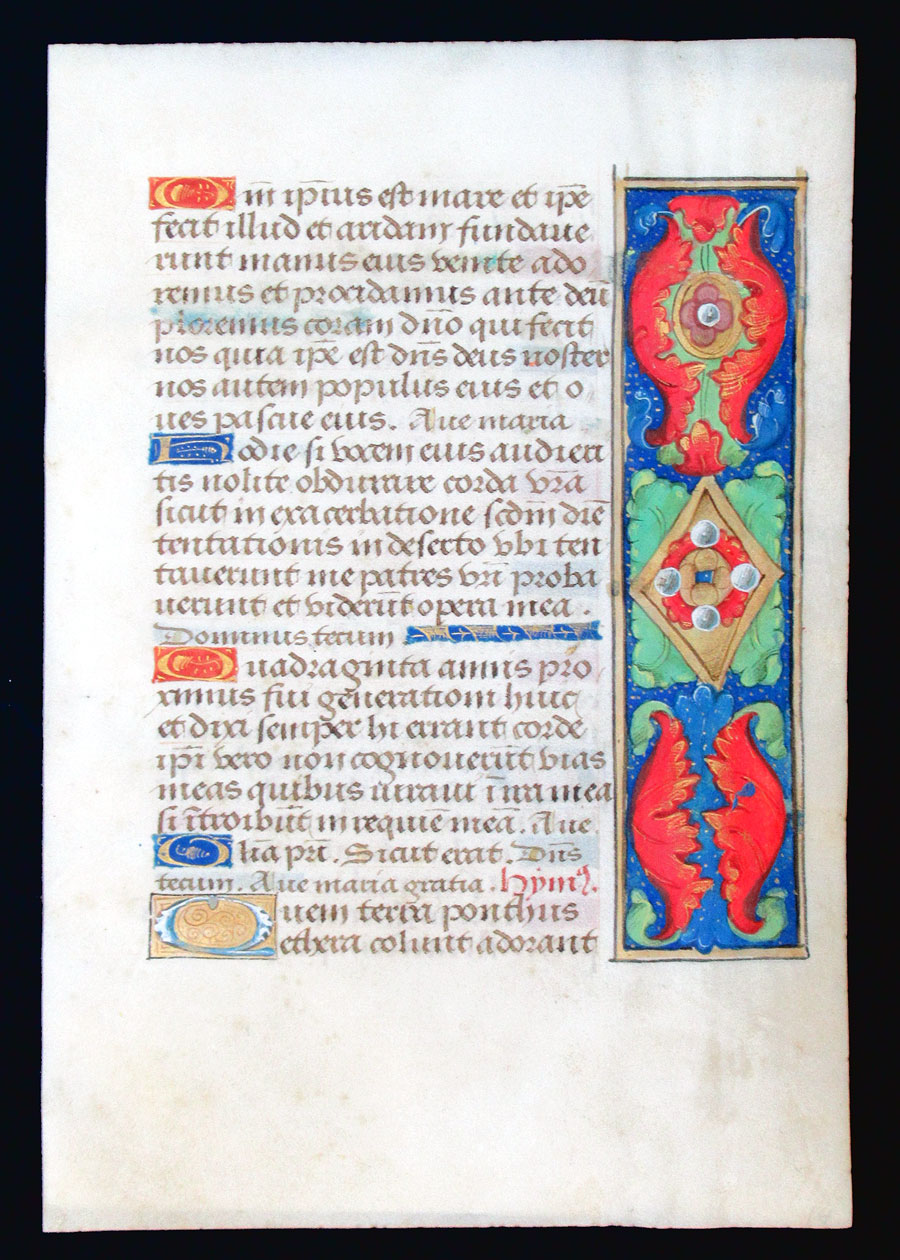 Qm̄ ip̄ius est mare et ip̄e
fecit illud et aridam fundaue
runt manus eius venite ado
remus et procidamus ante deū
ploremus coram dn̄o qui fecit
nos quia ip̄e est dn̄s deus noster
nos autem populus eius et o
ues pascue eius. Aue maria
Hodie si vocem eius audieri
tis nolite obdurare corda vr̄a
sicut in exacerbatione scd̄m diē
tentationis in deserto vbi ten
tauerunt me patres vr̄i proba
uerunt et viderūt opera mea.
Dominus tecum
Quadraginta annis pro
ximus fui generationi huic
et dixi semper hi errant corde
ip̄i vero non cognouerūt vias
meas quibus iuraui ī ira mea
si ītroibūt in requiē meā. Aue
Glīa pr̄i. Sicut erat. Dn̄s
tecum. Aue maria gratia. hym9.
Quem terra ponthus
ethera colunt adorant